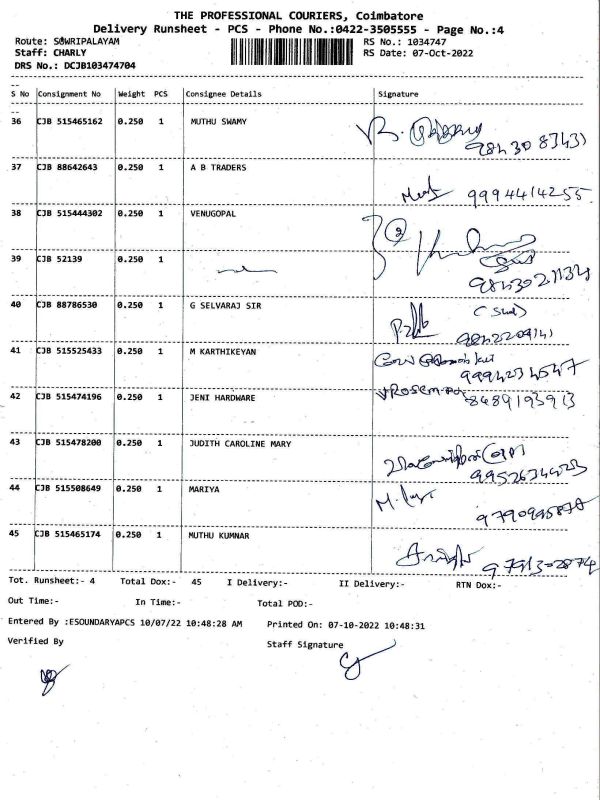 THE PROFESSIONAL COURIERS, Coimbatore
Delivery Runsheet - PCS - Phone No.:0422-3505555 - Page No.:4
Route: SOWRIPALAYAM RS No.: 1034747
Staff: CHARLY RS Date: 07-Oct-2022
DRS No.: DCJB103474704
S No Consignment No Weight PCS Consignee Details Signature
36 CJB 515465162 0.250 1 MUTHU SWAMY
37 CJB 88642643 0.250 1 A B TRADERS
9994414255
38 CJB 515444302 0.250 1 VENUGOPAL
39 CJB 52139 0.250 1
40 CJB 88786530 0.250 1 G SELVARAJ SIR
41 CJB 515525433 0.250 1 M KARTHIKEYAN
9994234547
42 CJB 515474196 0.250 1 JENI HARDWARE
8489193913
43 CJB 515478200 0.250 1 JUDITH CAROLINE MARY
44 CJB 515508649 0.250 1 MARIYA
45 CJB 515465174 0.250 1 MUTHU KUMNAR
9791302874
Tot. Runsheet:- 4 Total Dox:- 45 I Delivery:- II Delivery:- RTN Dox:-
Out Time:- In Time:- Total POD:-
Entered By :ESOUNDARYAPCS 10/07/22 10:48:28 AM Printed On: 07-10-2022 10:48:31
Verified By Staff Signature